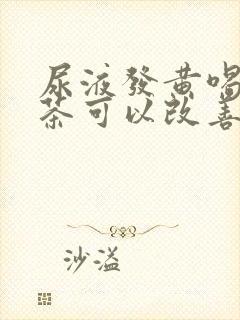 尿液發黄喝
茶可以改善
沙溢